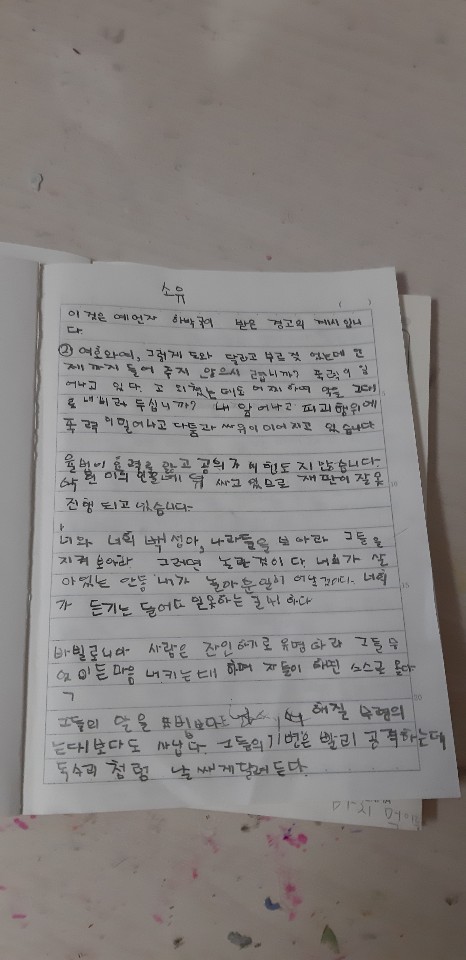 소유
이것은 예언자 하박국이 받은 경고의 계시입니
다.
② 여호와여, 그렇게 도와 달라고 부르짖었는데 언
제까지 들어 주지 않으시렵니까? 폭력이 일
어나고 있다. 고 외쳤는데도 어찌하여 악을 그대
로 내버려 두십니까? 내 앞에나고 피괴행위에
폭력이 일어나고 다툼과 싸움이 이어지고 있습니다
율법이 효력을 잃고 공의가 시행도지 않습니다.
악한이 의로운 에워 싸고 있으므로 재판이 잘못
진행 되고 있습니다.
너와 너희 백성아, 나라들을 보아라 그들을
지켜 보아라 그러면 놀란 것이다. 너희가 살
아있는 안동 내가 놀라운 일이 어날 것이다. 너희
가 듣기는 들어도 믿못하는 하다
바빌로니아 사람은 잔인하기로 유명하라 그들은
마음 내키는데 하며 자들이 하던 스스로 온다
ㄱ
그들의 말을 표범보다는 해질 수령의
는대보다도 사납다. 그들의 기병은 빨리 공격하는데
독수리 첨럼 날쌔게 달려든다.